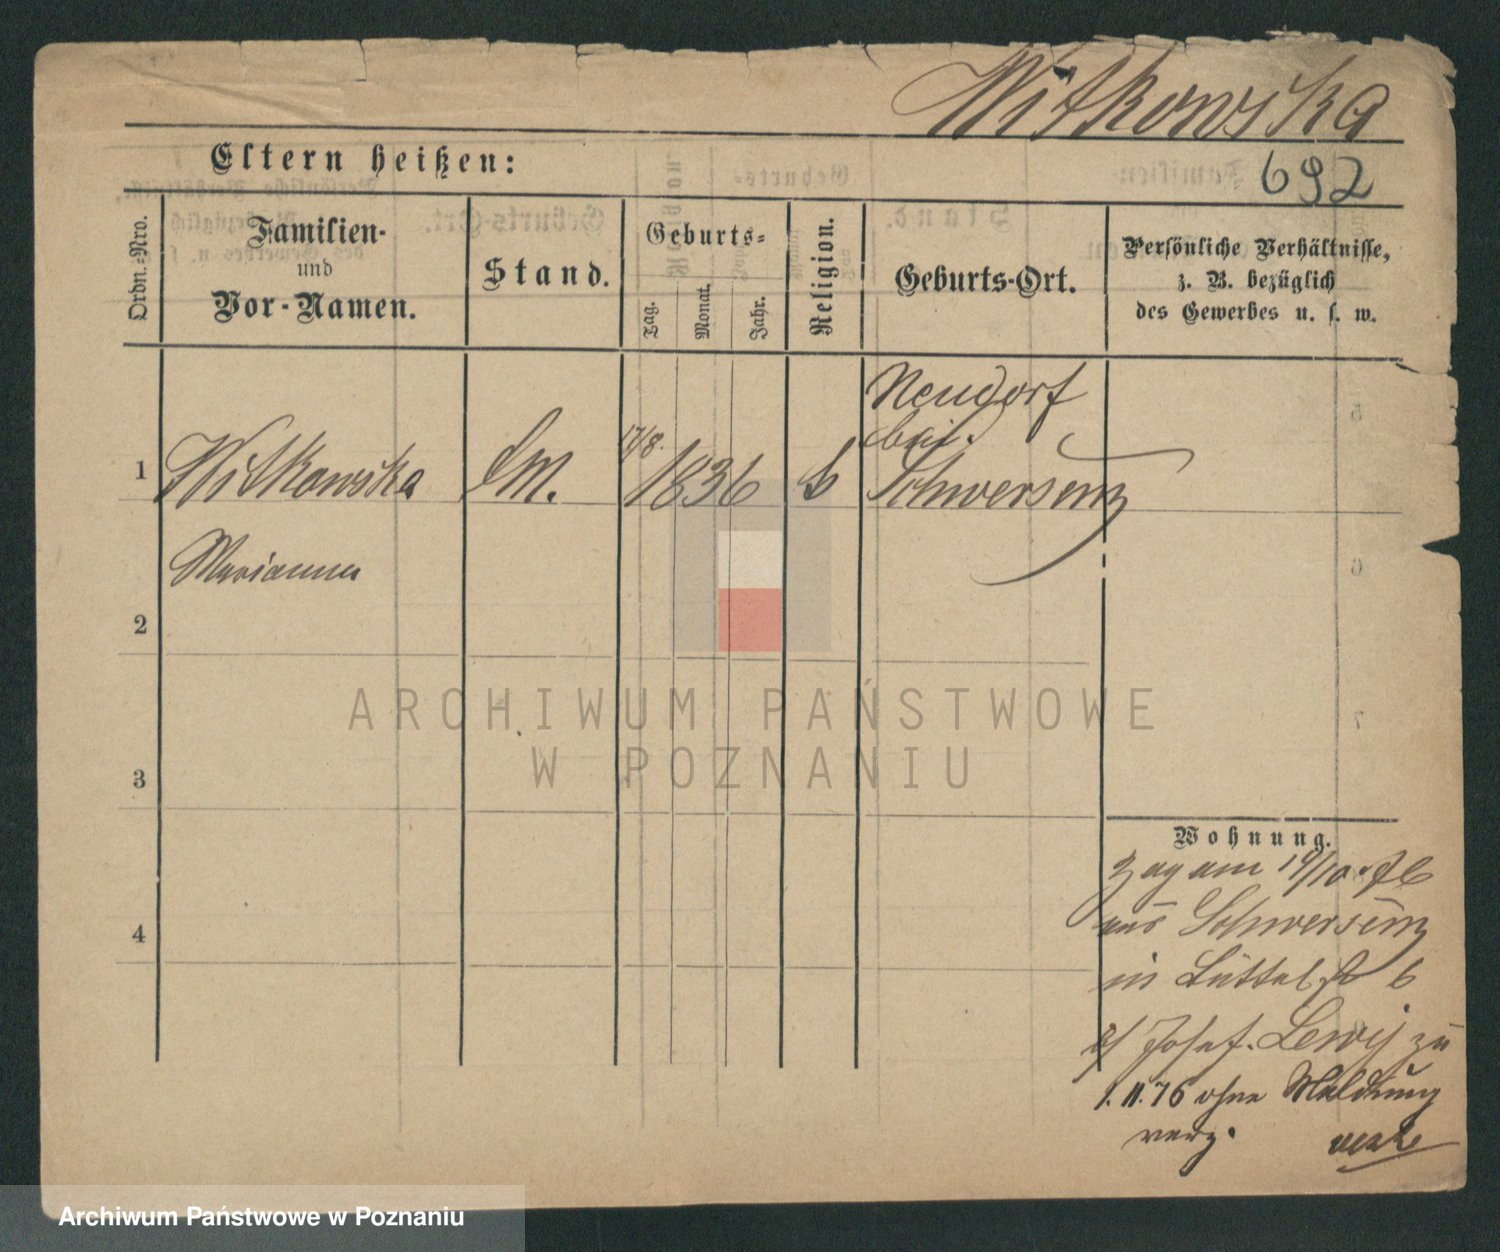 Witkowska
692
Eltern heißen:
Ordn.-Nro.
Familien-
und
Vor-Namen.
Stand.
Geburts-
Tag.
Monat.
Jahr.
Religion.
Geburts-Ort.
Persönliche Verhältnisse,
z. B. bezüglich
des Gewerbes u. s. w.
1 Witkowska 17/8. 1836 Neudorf
bei
Schwersenz
Marianna
2
3
4
ARCHIWUM PAŃSTWOWE
W POZNANIU
Wohnung.
Zog am 10. 76
aus Schwersenz
in 6
b/ Josef Lewy zu
1.11.76 ohne Meldung
verz.
Archiwum Państwowe w Poznaniu